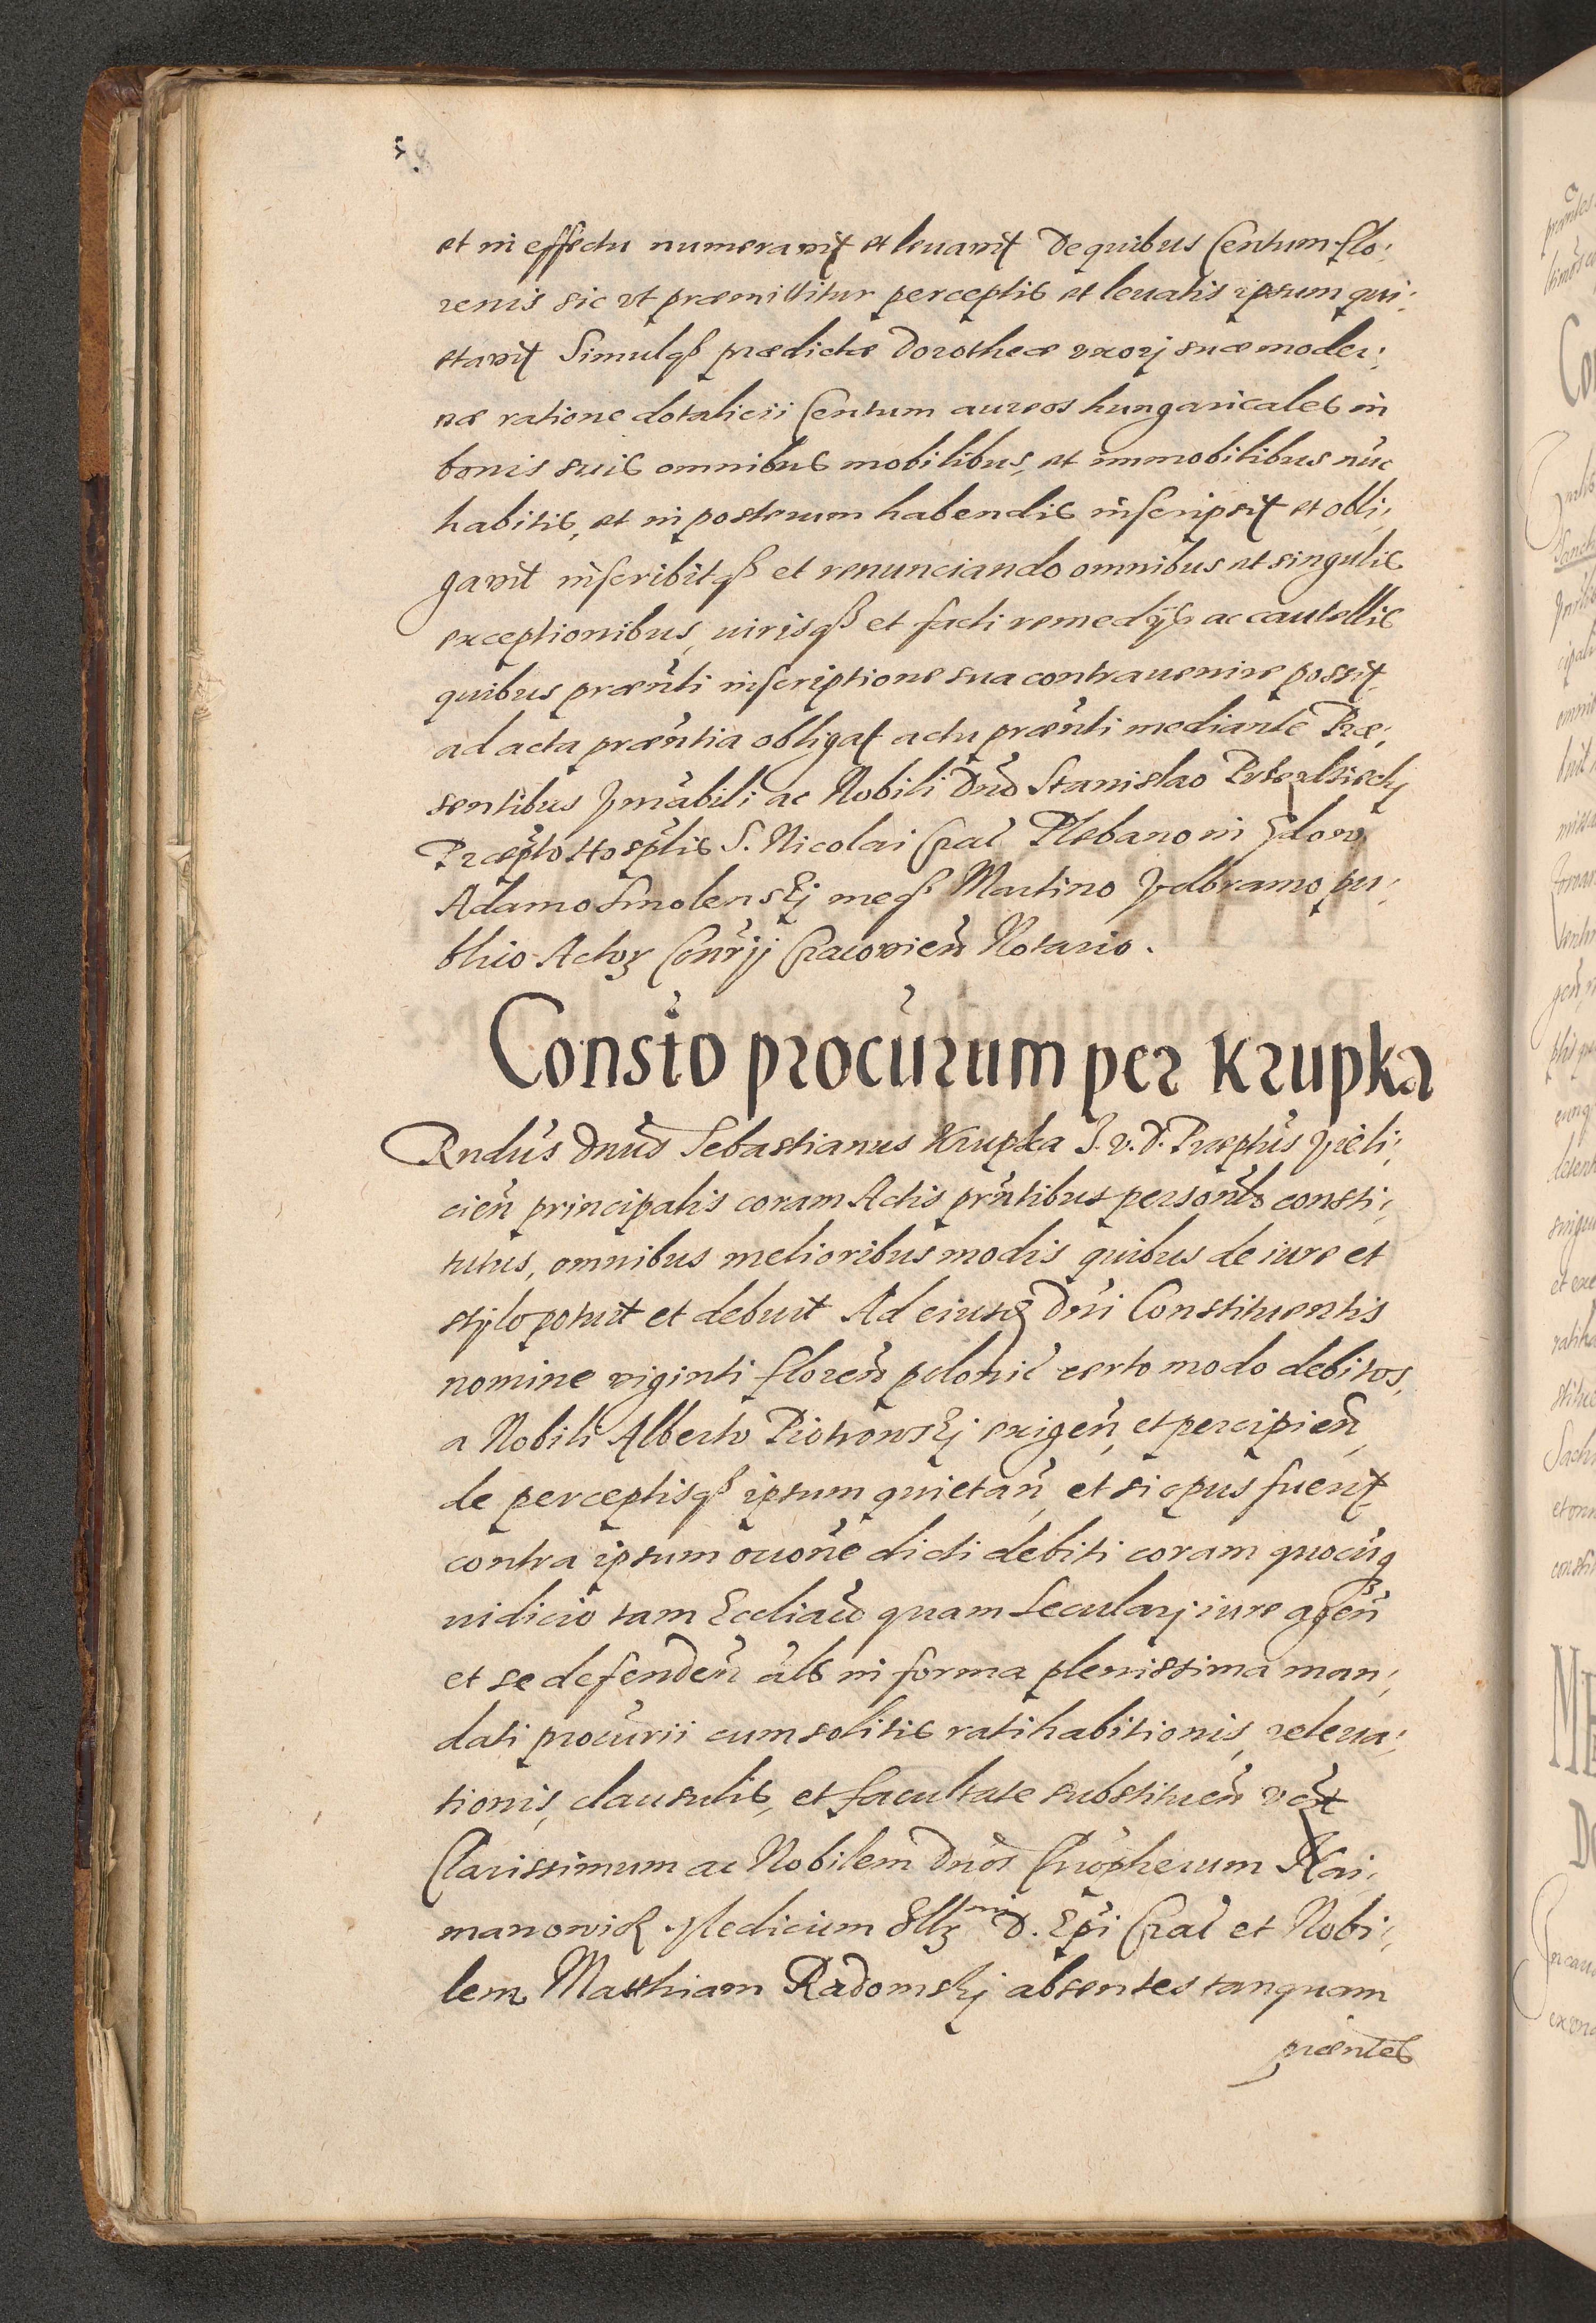 et in effectu numeravit et levavit De quibus Centum flo:
renis sic ut præmittitur perceptis et levatis ipsum qui:
etavit Simulq₃ prædictæ Dorotheæ uxorj suæ moder:
næ ratione dotalicii Centum aureos hungaricales in
bonis suis omnibus mobilibus, et immobilibus nūc
habitis, et in posterum habendis inscripsit et obli:
gavit inscribitq₃ et renunciando omnibus et singulis
exceptionibus, iurisq₃ et facti remedijs ac cautellis
quibus præn̄ti inscriptione sua contravenire possit
ad acta præn̄tia obligat actu præn̄ti mediante Præ:
sentibus Vn̄rabili ac Nobili Dn̄o Stanislao
Præp̄to Hosp̄lis S. Nicolai Crac̄ Plebano in
Adamo Smolenskj meq₃ Martino Jzdbramo pu:
blico Actoꝝ Con̄rij Cracovień Notario.
Consīo procūrum per Krupka
Rndūs Dnūs Sebastianus Krupka J. v. D. Præptūs Vieli:
cień principalis coram Actis prn̄tibus person̄lr consti:
tutus, omnibus melioribus modis quibus de iure et
stylo potuit et debuit Ad eiusd Dn̄i Constituentis
nomine viginti floren̄ polonic̄ certo modo debitos,
a Nobili Alberto Piotrowskj exigen̄, et percipien̄,
de perceptisq₃ ipsum quietan̄, et si opus fuerit
contra ipsum occōne dicti debiti coram quocūq₃
iudicio tam Ecclīaco quam Secularj iure agen̄
et se defenden̄ al̄s in forma plenissima man:
dati procūrii cum solitis ratihabitionis, releva:
tionis, clausulis, et facultate substituen̄
Clarissimum ac Nobilem Dn̄os Chr̄opherum Nai:
manowicz Medicium Illꝫ mi D. Ep̄i Crac̄ et Nobi:
lem Matthiam Radomskj absentes tanquam
præn̄tes